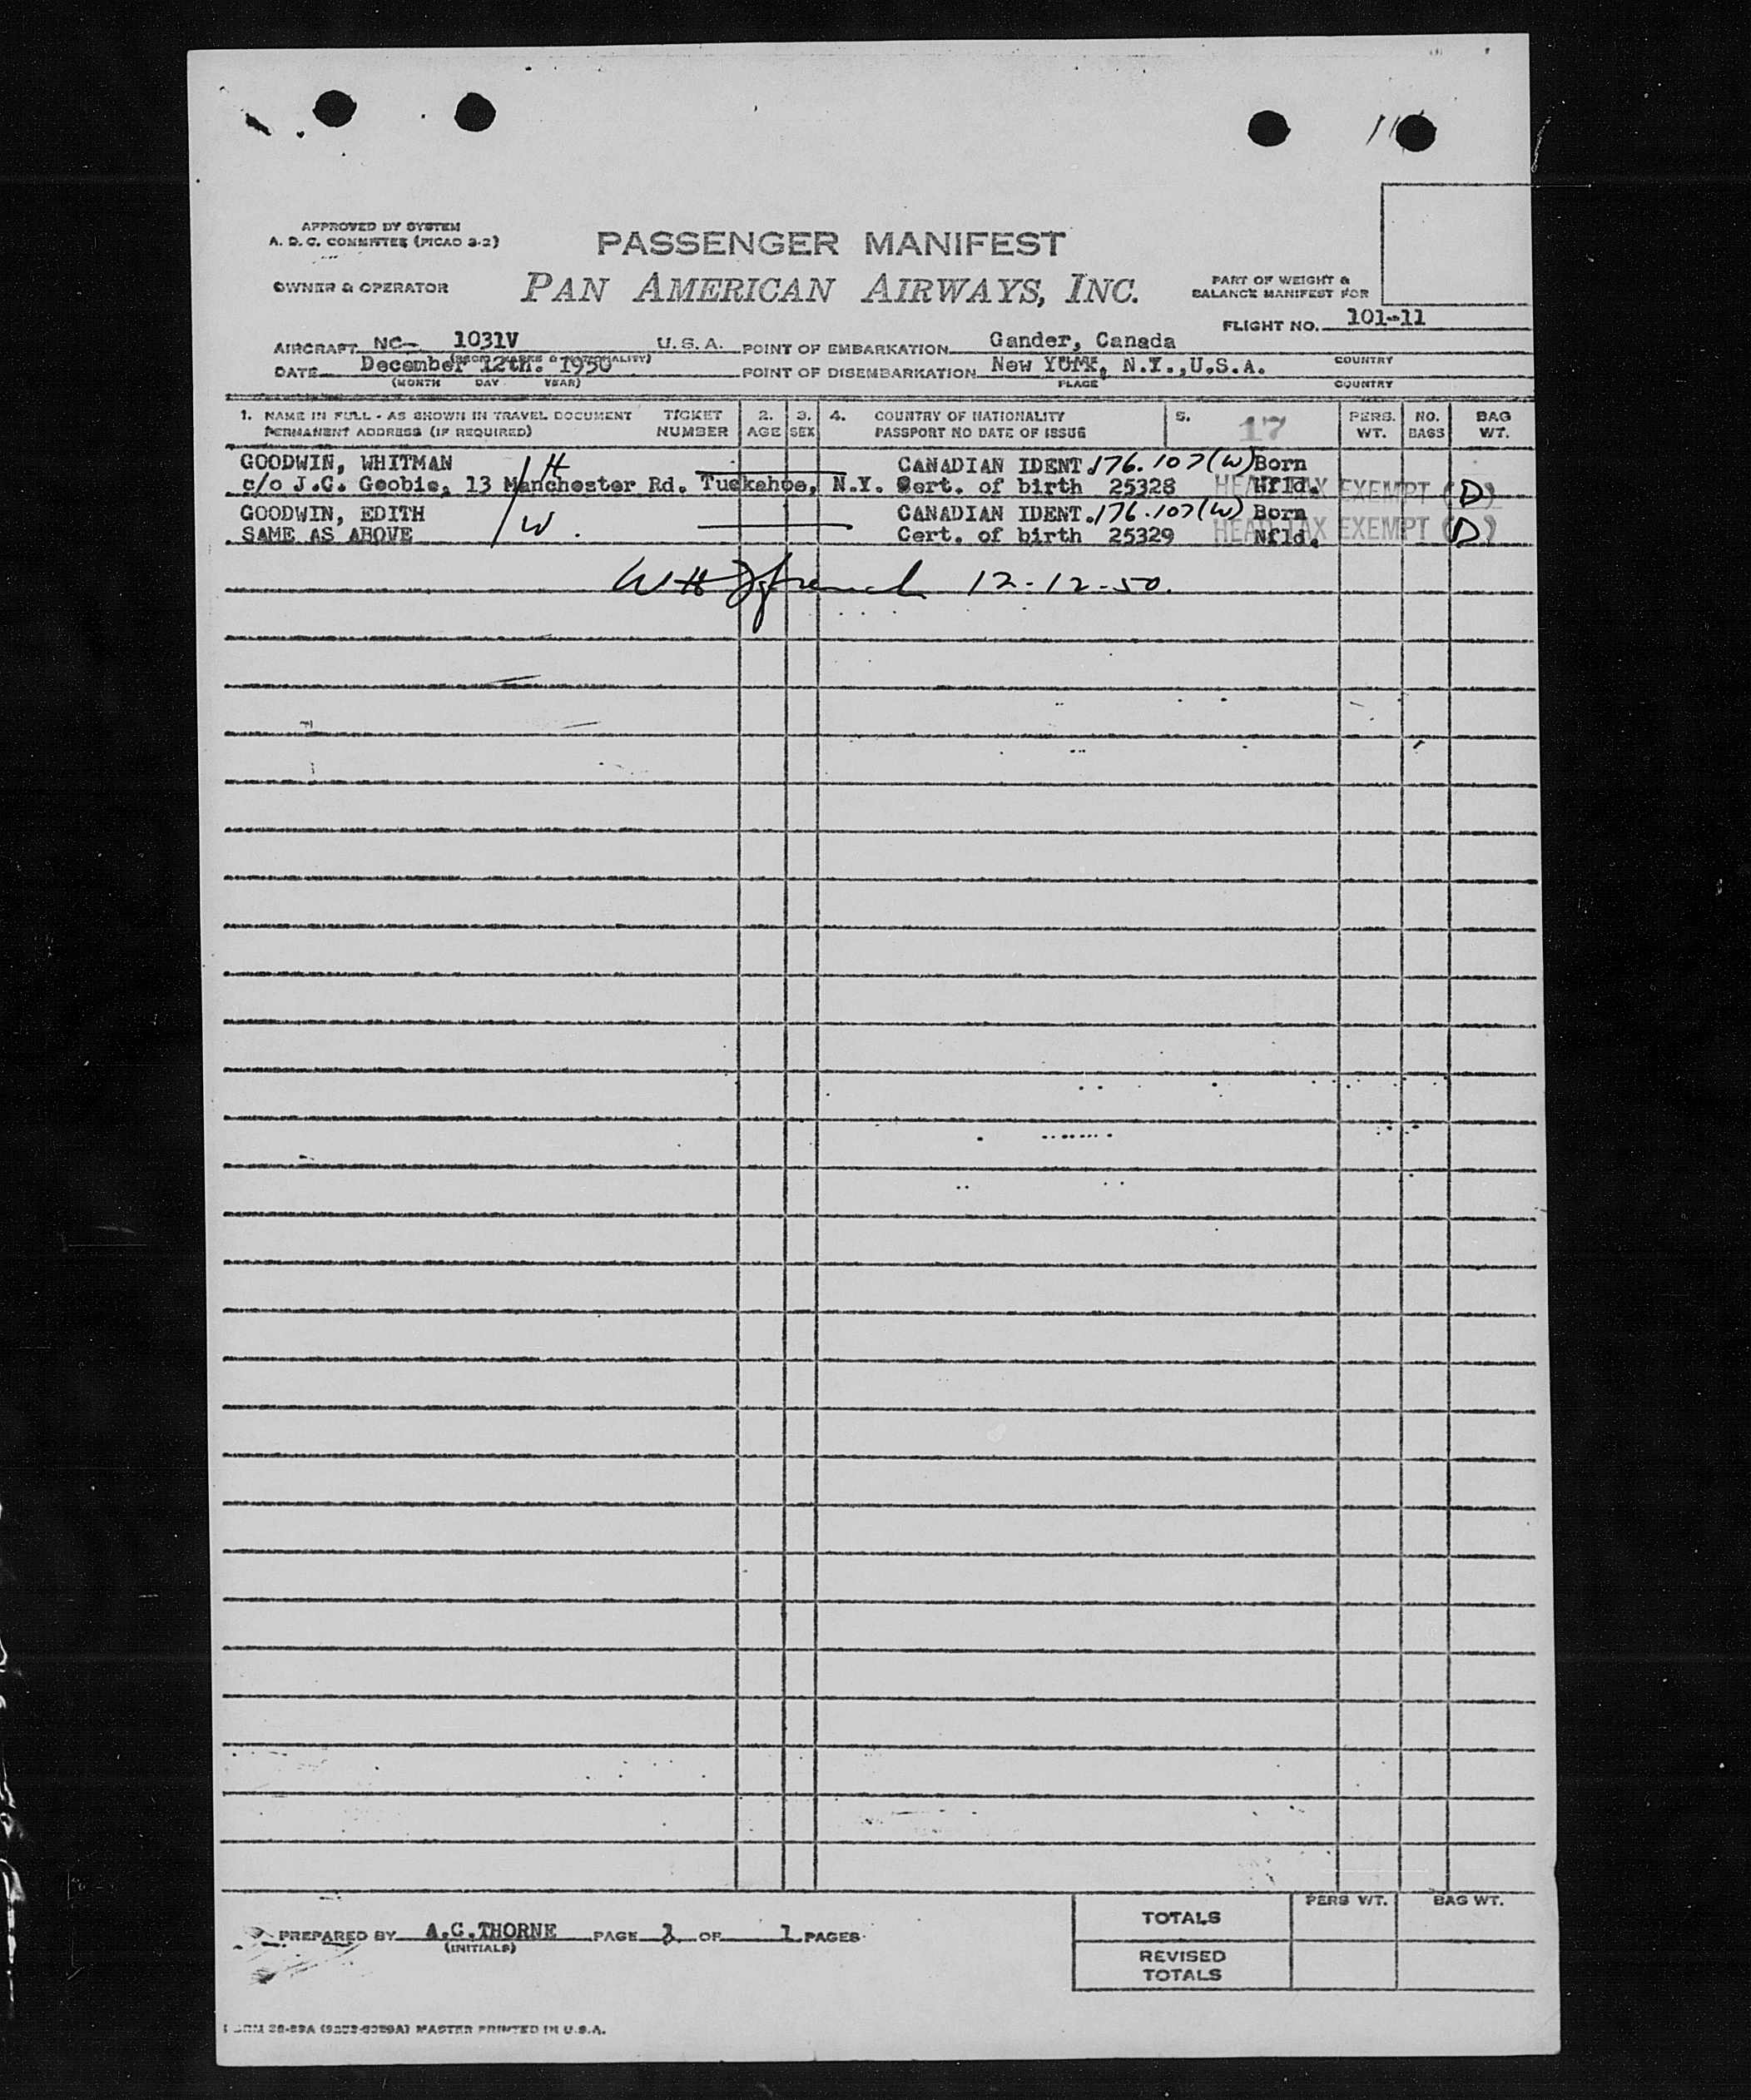 APPROVED BY SYSTEM
A. D. C. COMMITTEE (PICAO 3-2)
PASSENGER MANIFEST
OWNER & OPERATOR
PAN AMERICAN AIRWAYS, INC.
PART OF WEIGHT &
BALANCE MANIFEST FOR
FLIGHT NO. 101-11
AIRCRAFT NC- 1031V U. S. A. POINT OF EMBARKATION Gander, Canada
COUNTRY
DATE December 12th. 1950 POINT OF DISEMBARKATION New York, N.Y.,U.S.A.
(MONTH DAY YEAR) PLACE COUNTRY
1. NAME IN FULL - AS SHOWN IN TRAVEL DOCUMENT TICKET 2. 3. 4. COUNTRY OF NATIONALITY 5. 17 PERS. NO. BAG
PERMANENT ADDRESS (IF REQUIRED) NUMBER AGE SEX PASSPORT NO DATE OF ISSUE WT. BAGS WT.
GOODWIN, WHITMAN H CANADIAN IDENT. 176.107(W) Born
c/o J.C. Geobie, 13 Manchester Rd. Tuckahoe, N.Y. Cert. of birth 25328 Nfld. HEAD TAX EXEMPT (D)
GOODWIN, EDITH W. CANADIAN IDENT. 176.107(W) Born
SAME AS ABOVE Cert. of birth 25329 Nfld. HEAD TAX EXEMPT (D)
12-12-50.
PERS WT. BAG WT.
TOTALS
PREPARED BY A.C.THORNE PAGE 1 OF 1 PAGES
(INITIALS)
REVISED
TOTALS
MASTER PRINTED IN U.S.A.